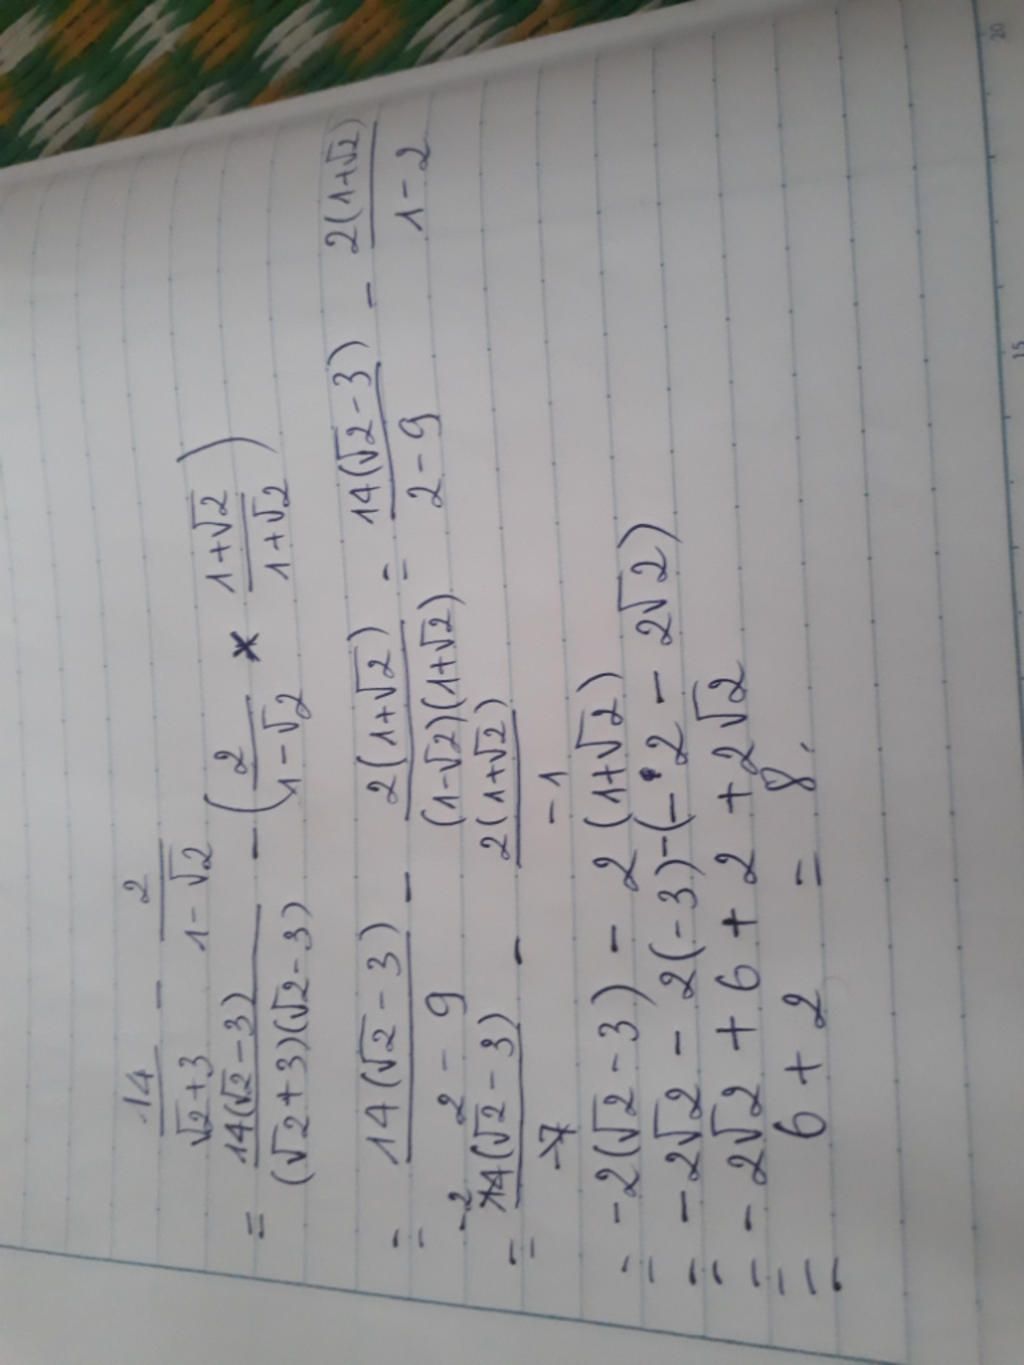 14/(√2+3) - 2/(1-√2)
= 14(√2-3)/((√2+3)(√2-3)) - (2/(1-√2) × (1+√2)/(1+√2))
= 14(√2-3)/(2-9) - 2(1+√2)/((1-√2)(1+√2)) = 14(√2-3)/(2-9) - 2(1+√2)/(1-2)
= -2 14(√2-3)/-7 - 2(1+√2)/-1
= -2(√2-3) - 2(1+√2)
= -2√2 - 2(-3) - (-2 - 2√2)
= -2√2 + 6 + 2 + 2√2
= 6 + 2 = 8.
20
15